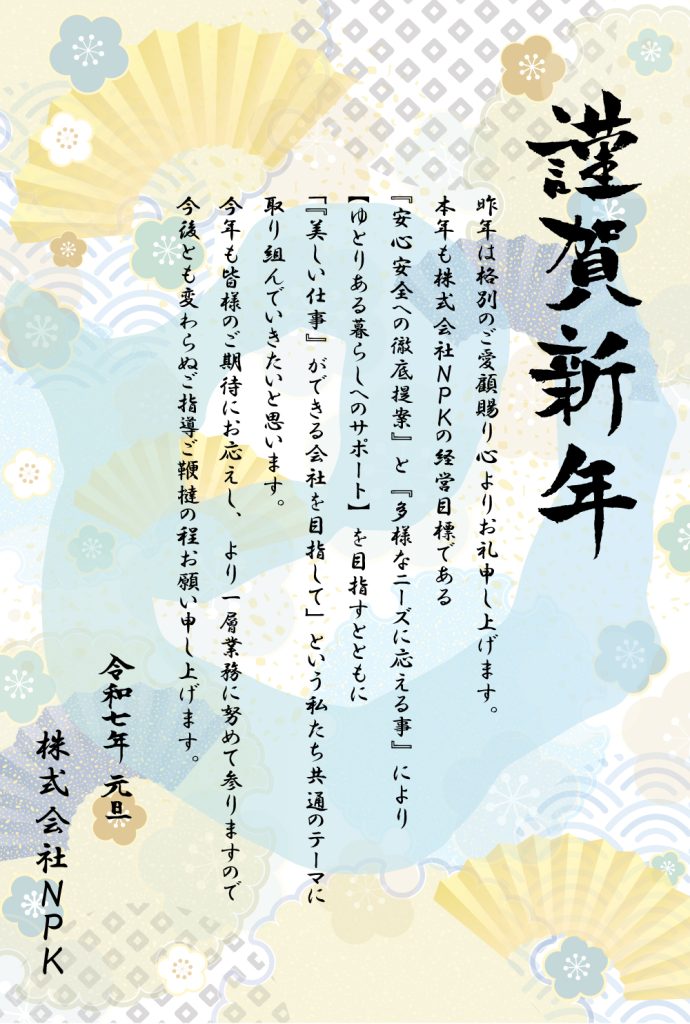 謹賀新年
昨年は格別のご愛顧賜り心よりお礼申し上げます。
本年も株式会社NPKの経営目標である
『安心安全への徹底提案』と『多様なニーズに応える事』により
【ゆとりある暮らしへのサポート】を目指すとともに
「『美しい仕事』ができる会社を目指して」という私たち共通のテーマに
取り組んでいきたいと思います。
今年も皆様のご期待にお応えし、より一層業務に努めて参りますので
今後とも変わらぬご指導ご鞭撻の程お願い申し上げます。
令和七年 元旦
株式会社NPK